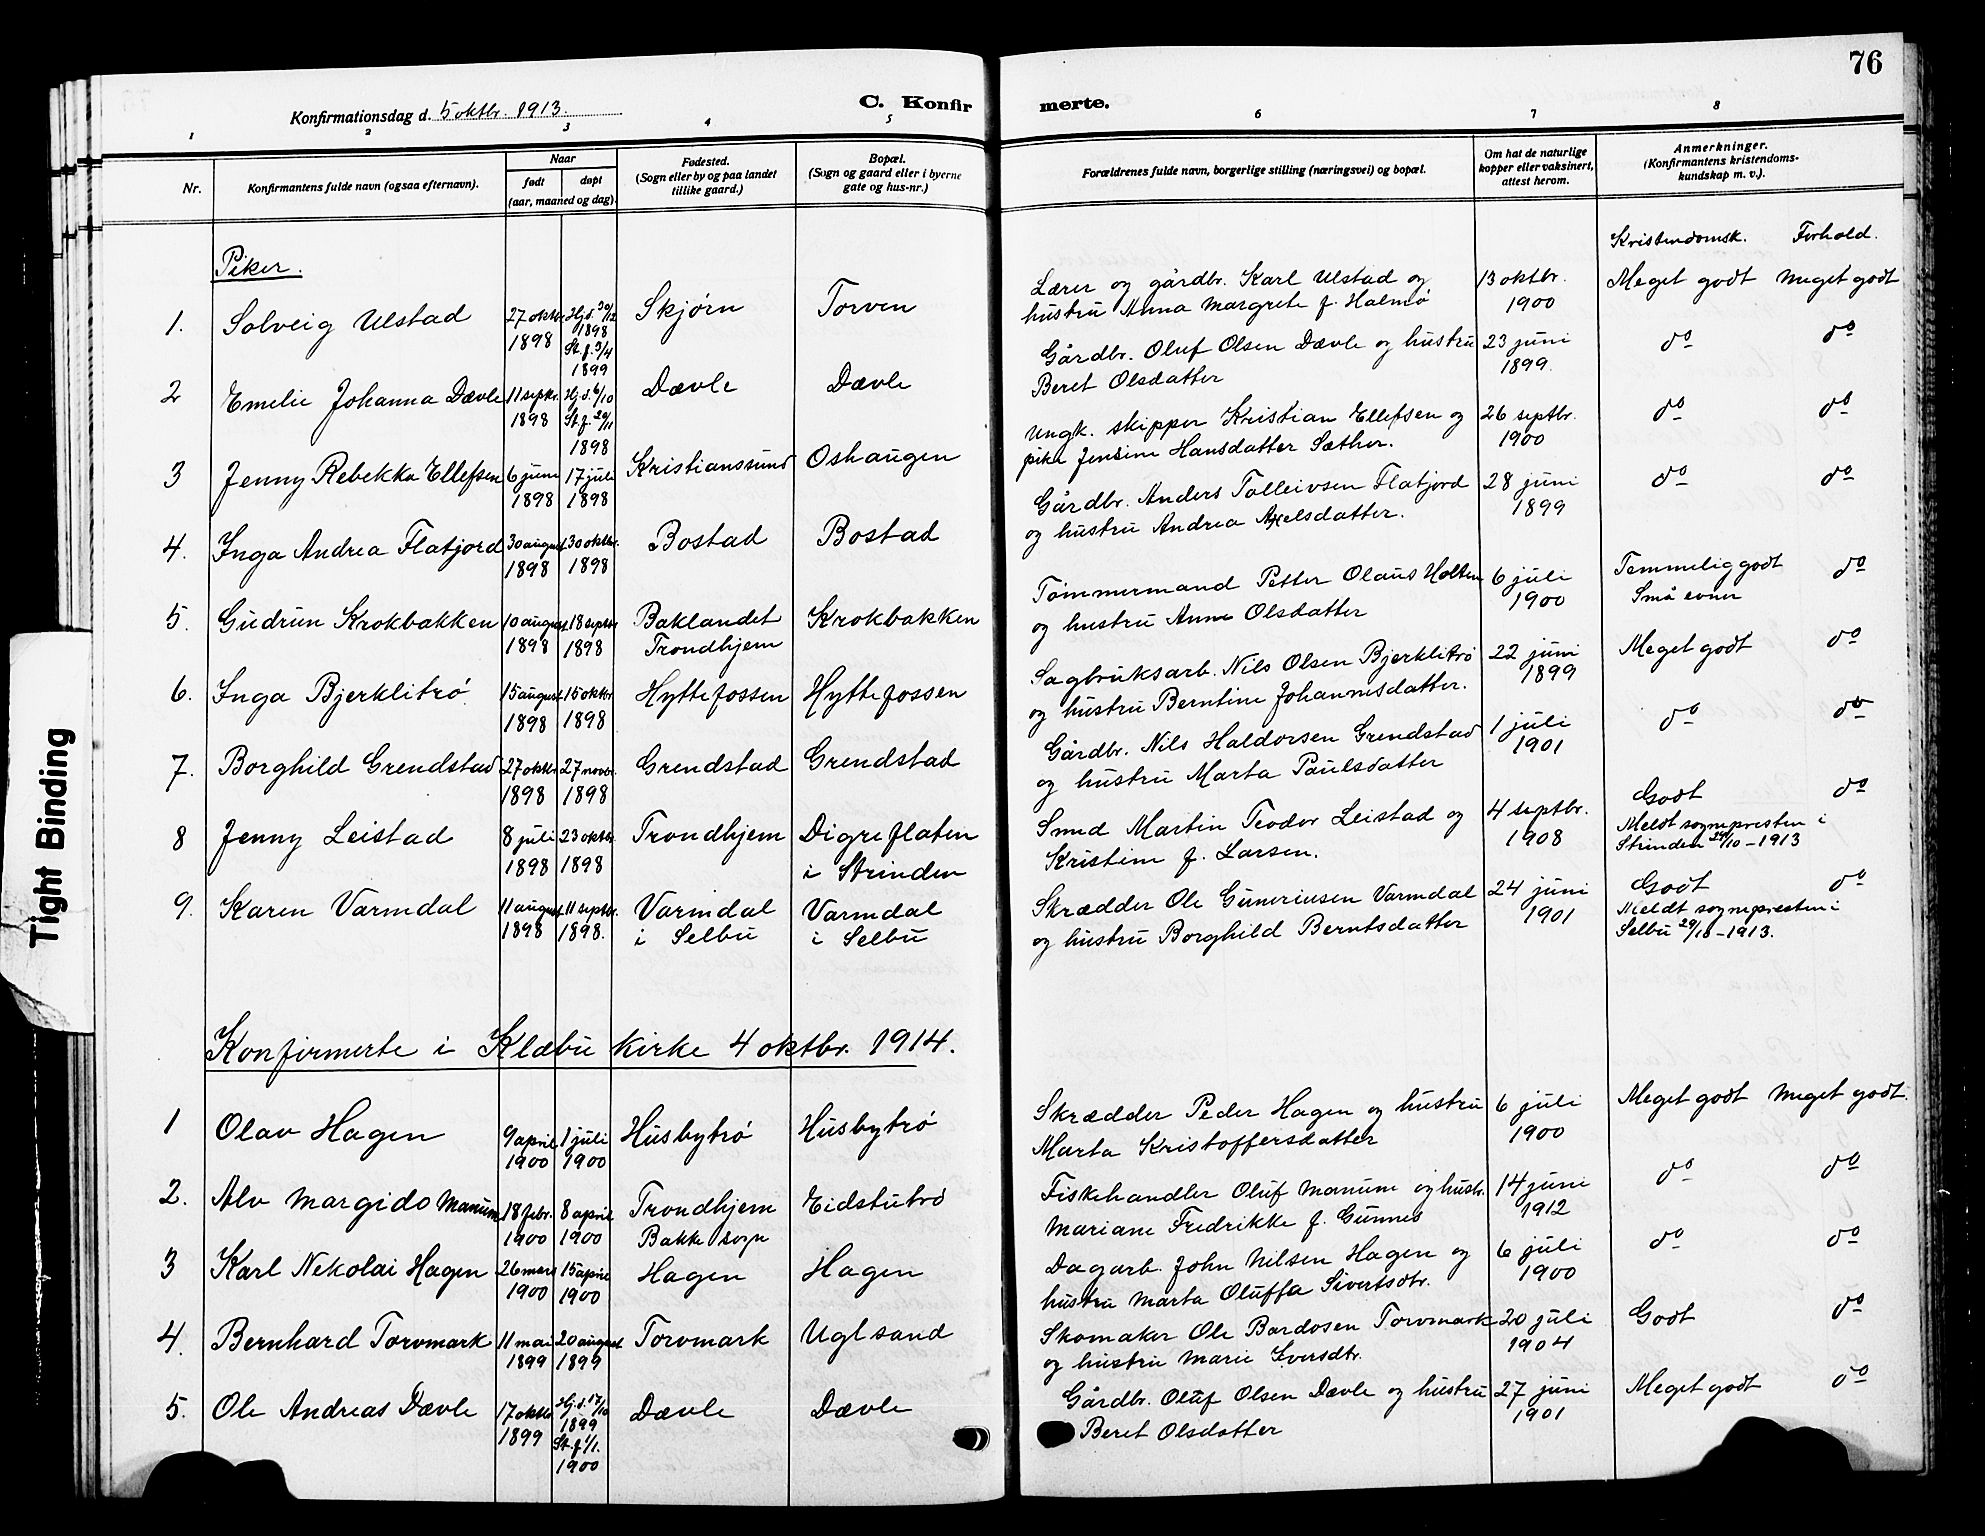 76
Konfirmationsdag d. 5 oktbr. 1913.
C. Konfirmerte.
1 2 3 4 5 6 7 8
Nr.
Konfirmantens fulde navn (ogsaa efternavn).
Naar
født
døpt
(aar, maaned og dag).
Fødested.
(Sogn eller by og paa landet
tillike gaard.)
Bopæl.
(Sogn og gaard eller i byerne
gate og hus-nr.)
Forældrenes fulde navn, borgerlige stilling (næringsvei) og bopæl.
Om hat de naturlige
kopper eller vaksinert,
attest herom.
Anmerkninger.
(Konfirmantens kristendoms-
kundskap m. v.).
Kristendomsk. Forhold.
Piker.
1. Solveig Ulstad 27 oktbr. 1898 Hj.d. 30/12 1898 St.f. 3/4 1899 Skjørn Torven
Lærer og gårdbr. Karl Ulstad og
hustru Anna Margrete f. Halmø
13 oktbr. 1900 Meget godt Meget godt
2 Emelie Johanna Dævle 11 septbr. 1898 Hj.d. 6/10 St.f. 20/11 1898 Dævle Dævle
Gårdbr. Oluf Olsen Dævle og hustru
Beret Olsdatter
23 juni 1899. do do
3 Jenny Rebekka Ellefsen 6 juni 1898 17 juli 1898 Kristianssund Oshaugen
Ungk. skipper Kristian Ellefsen og
pike Jensine Hansdatter Sæther.
26 septbr. 1900 do do
4. Inga Andrea Flatjord 30 august 1898 30 oktbr. 1898 Bostad Bostad
Gårdbr. Anders Tolleivsen Flatjord
og hustru Andrea Axelsdatter.
28 juni 1899 do do
5. Gudrun Krokbakken 10 august 1898 18 septbr. 1898 Baklandet Trondhjem Krokbakken
Tømmermand Petter Olaus Holten
og hustru Anne Olsdatter
6 juli 1900 Temmelig godt Små evner do
6. Inga Bjerklitrø 15 august 1898 15 oktbr. 1898 Hyttefossen Hyttefossen
Sagbruksarb. Nils Olsen Bjerklitrø
og hustru Berntine Johannesdatter.
22 juni 1899 Meget godt do
7. Borghild Grendstad 27 oktbr. 1898 27 novbr. 1898 Grendstad Grendstad
Gårdbr. Nils Haldorsen Grendstad
og hustru Marta Paulsdatter
1 juli 1901 do do
8 Jenny Leistad 8 juli 1898 23 oktbr. 1898 Trondhjem Digreflaten i Strinden
Smed Martin Teodor Leistad og
Kristine f. Larsen.
4 septbr. 1908 Godt do
Meldt sognepresten i
Strinden 29/10 - 1913
9. Karen Varmdal 11 august 1898 11 septbr. 1898. Varmdal i Selbu Varmdal i Selbu
Skrædder Ole Guneriusen Varmdal
og hustru Borghild Berntsdatter
24 juni 1901 Godt do
Meldt sognepresten i
Selbu 29/10 - 1913.
Konfirmerte i Klæbu kirke 4 oktbr. 1914.
1 Olav Hagen 9 april 1900 1 juli 1900 Husbytrø Husbytrø
Skrædder Peder Hagen og hustru
Marta Kristoffersdatter
6 juli 1900 Meget godt Meget godt.
2. Alv Margido Manum 18 febr. 1900 8 april 1900 Trondhjem Bakke sogn Eidstutrø
Fiskehandler Oluf Manum og hustr.
Mariane Fredrikke f. Gunnes
14 juni 1912 do do
3 Karl Nekolai Hagen 26 mars 1900 15 april 1900 Hagen Hagen
Dagarb. John Nilsen Hagen og
hustru Marta Oluffa Sivertsdtr.
6 juli 1900 do do
4. Bernhard Torvmark 11 mai 1899 20 august 1899 Torvmark Uglsand
Skomaker Ole Bardosen Torvmark
og hustru Marie Iversdtr.
20 juli 1904 Godt do
5. Ole Andreas Dævle 17 oktbr. 1899 Hj.d. 17/10 1899 St.f. 1/1. 1900 Dævle Dævle
Gårdbr. Oluf Olsen Dævle og hustru
Beret Olsdatter
27 juni 1901 Meget godt do
Tight Binding